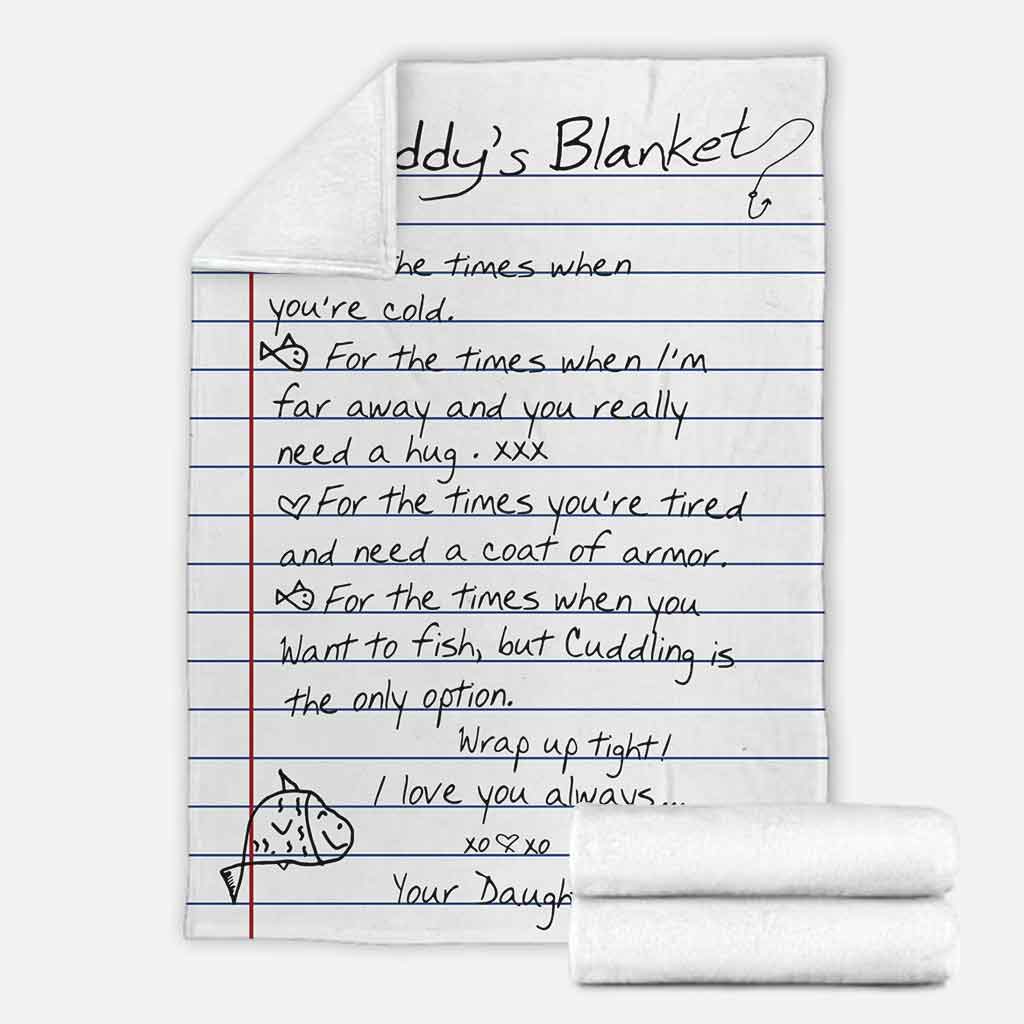 ddy's Blanket
he times when
you're cold.
For the times when I'm
far away and you really
need a hug. xxx
For the times you're tired
and need a coat of armor.
For the times when you
Want to fish, but Cuddling is
the only option.
Wrap up tight!
I love you always...
xo♡xo
Your Daugh